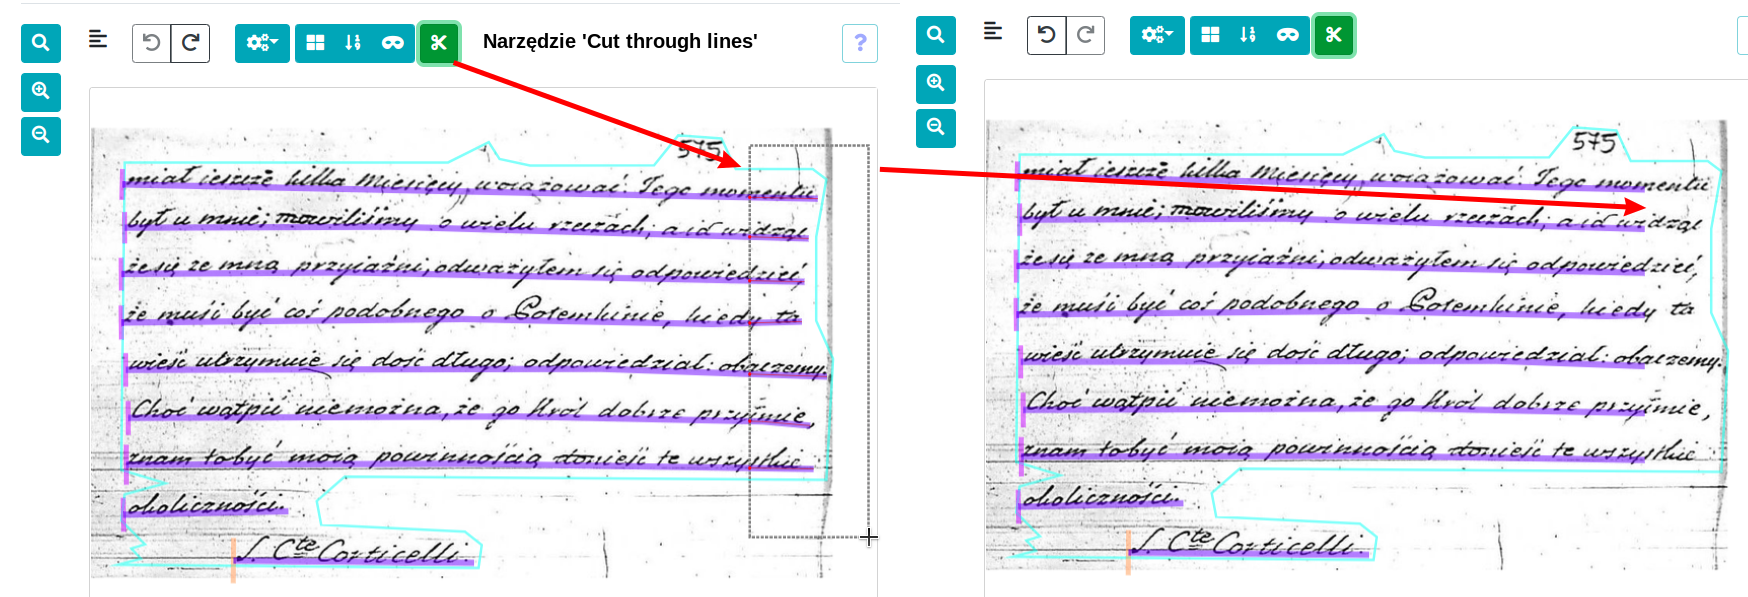 Narzędzie 'Cut through lines'
?
575
miał ieszcze kilka Miesięcy, worażować. Tego momentu
był u mnie; mowiliśmy o wielu rzeczách, a id widząc
że się ze mną przyiaźni, odważyłem się odpowiedzieć,
że muśi być coś podobnego o Potemkinie, kiedy ta
wieść utrzymuie się dość długo; odpowiedział: obaczemy.
Choć wątpić niemożna, że go Król dobrze przyimie,
znam to być moią powinnością donieść te wszystkie
okoliczności.
J. Cte Corticelli.
575
miał ieszcze kilka Miesięcy, worażować. Tego momentu
był u mnie; mowiliśmy o wielu rzeczách, a id widząc
że się ze mną przyiaźni, odważyłem się odpowiedzieć,
że muśi być coś podobnego o Potemkinie, kiedy ta
wieść utrzymuie się dość długo; odpowiedział: obaczemy.
Choć wątpić niemożna, że go Król dobrze przyimie,
znam to być moią powinnością donieść te wszystkie
okoliczności.
J. Cte Corticelli.